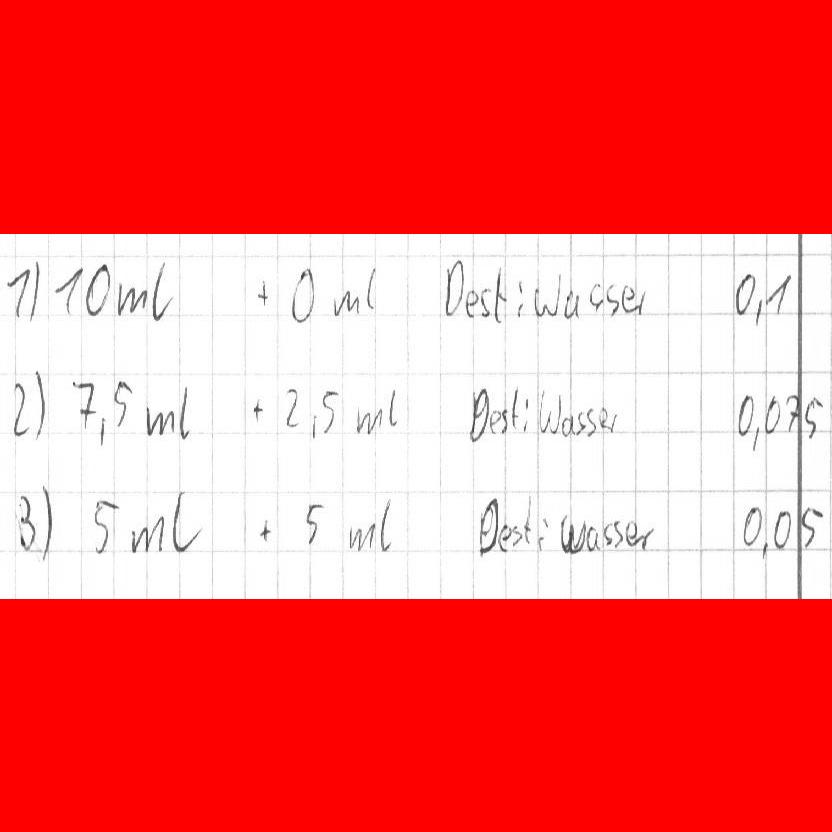 1) 10 ml + 0 ml Desti Wasser 0,1
2) 7,5 ml + 2,5 ml Desti Wasser 0,075
3) 5 ml + 5 ml Desti Wasser 0,05